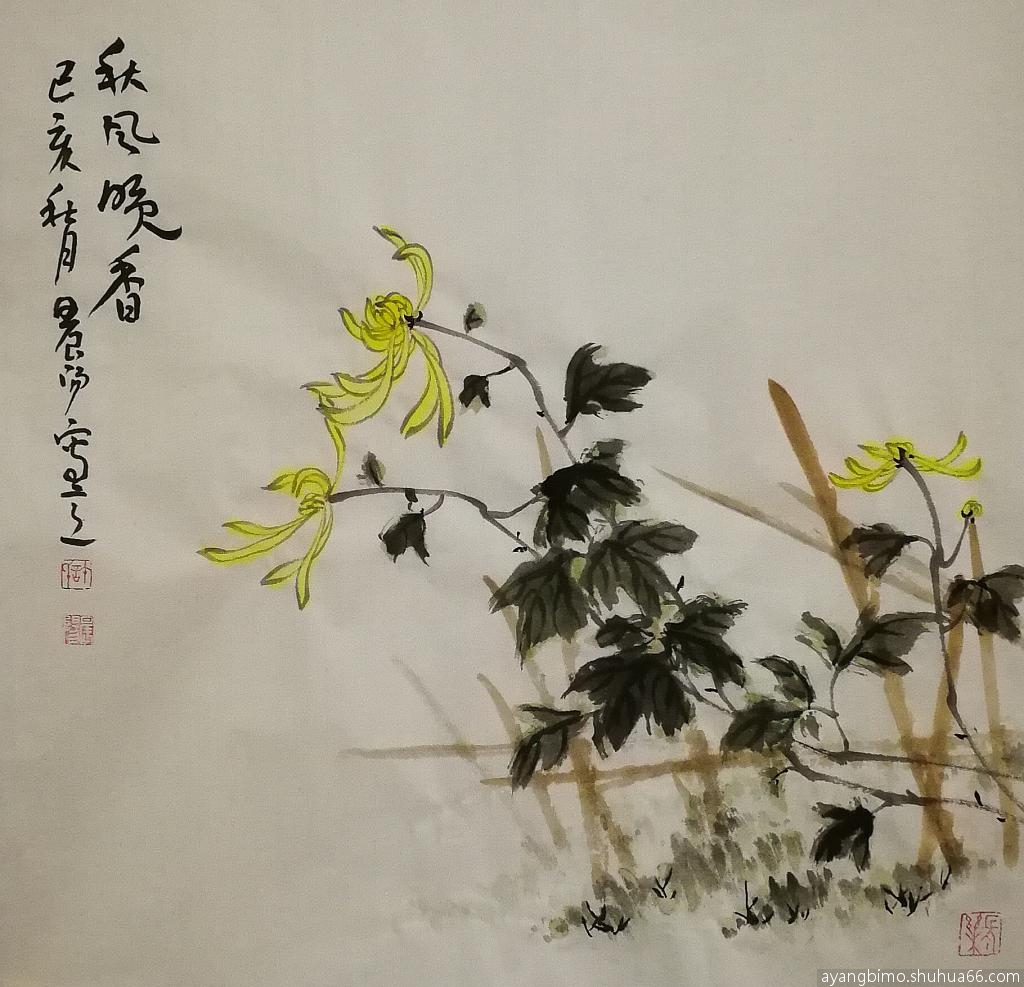 秋风晚香
己亥秋月晨阳写之
ayangbimo.shuhua66.com